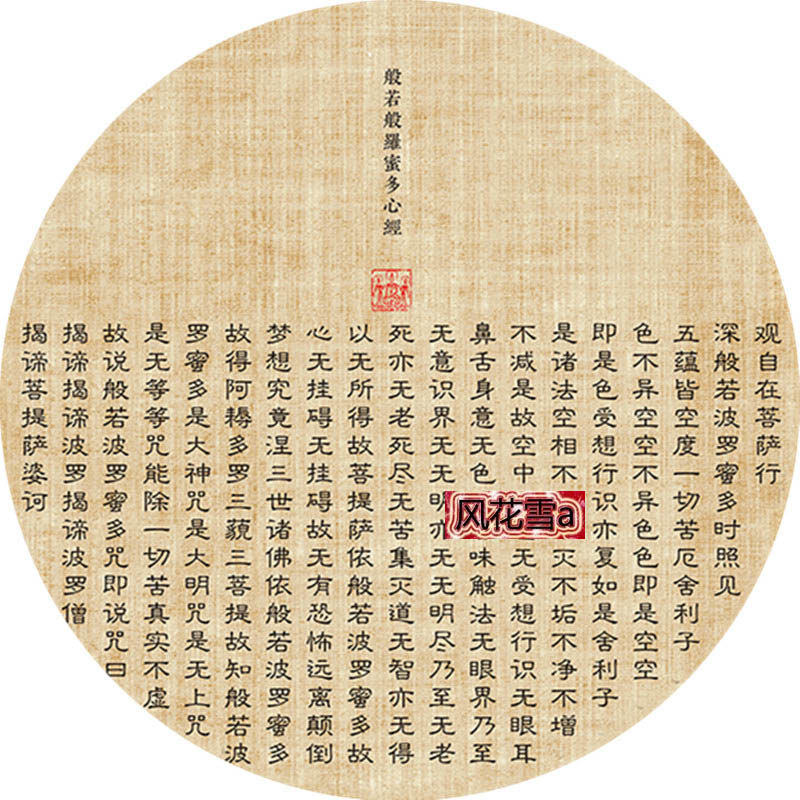 般若般羅蜜多心經
观自在菩萨行
深般若波罗蜜多时照见
五蕴皆空度一切苦厄舍利子
色不异空空不异色色即是空空
即是色受想行识亦复如是舍利子
是诸法空相不灭不垢不净不增
不减是故空中无受想行识无眼耳
鼻舌身意无色味触法无眼界乃至
无意识界无无明亦无无明尽乃至无老
死亦无老死尽无苦集灭道无智亦无得
以无所得故菩提萨依般若波罗蜜多故
心无挂碍无挂碍故无有恐怖远离颠倒
梦想究竟涅三世诸佛依般若波罗蜜多
故得阿耨多罗三藐三菩提故知般若波
罗蜜多是大神咒是大明咒是无上咒
是无等等咒能除一切苦真实不虚
故说般若波罗蜜多咒即说咒曰
揭谛揭谛波罗揭谛波罗僧
揭谛菩提萨婆诃
风花雪a